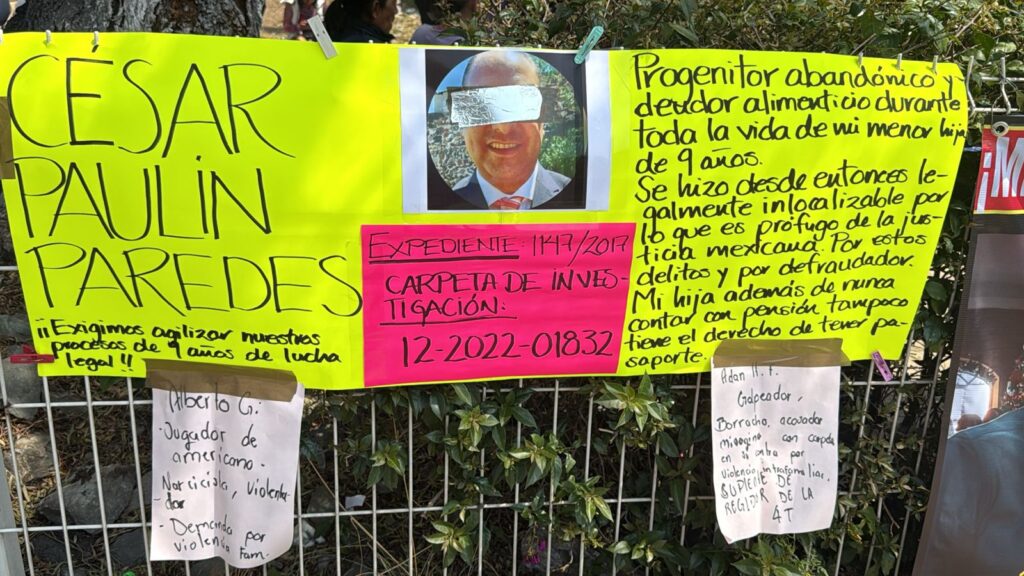 CÉSAR
PAULÍN
PAREDES
¡¡Exigimos agilizar nuestros
procesos de 9 años de lucha
legal!!
EXPEDIENTE: 1147/2017
CARPETA DE INVES-
TIGACIÓN:
12-2022-01832
Progenitor abandónico y
deudor alimenticio durante
toda la vida de mi menor hija
de 9 años.
Se hizo desde entonces le-
galmente inlocalizable por
lo que es prófugo de la jus-
ticia mexicana. Por estos
delitos y por defraudador.
Mi hija además de nunca
contar con pensión tampoco
tiene el derecho de tener pa-
saporte.
Alberto G.
- Jugador de
americano.
Narcicista, violenta-
dor
- Demandado por
violencia Fam.
Adan H. F.
Golpeador,
Borracho, acosador
misogino con carpeta
en su contra por
violencia intrafamiliar,
SUPLENTE DE
REGIDOR DE LA
4T
¡M